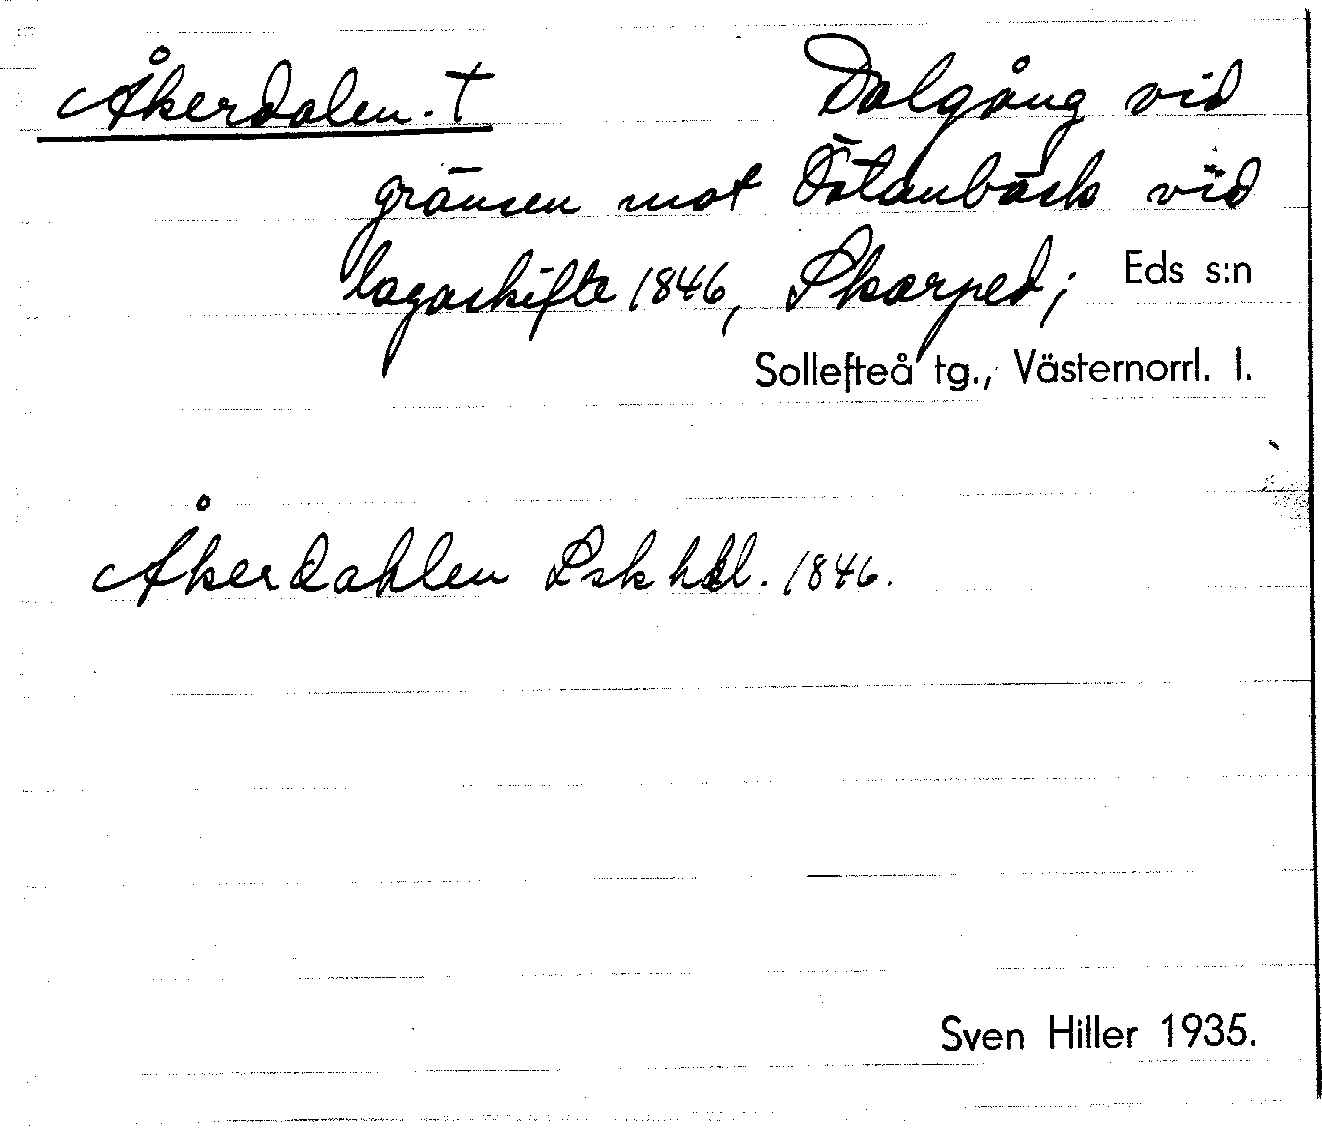 Åkerdalen. † Dalgång vid
gränsen mot Östanbäck vid
lagaskifte 1846, Skarped; Eds s:n
Sollefteå tg., Västernorrl. l.
Åkerdahlen Lsk hdl. 1846.
Sven Hiller 1935.